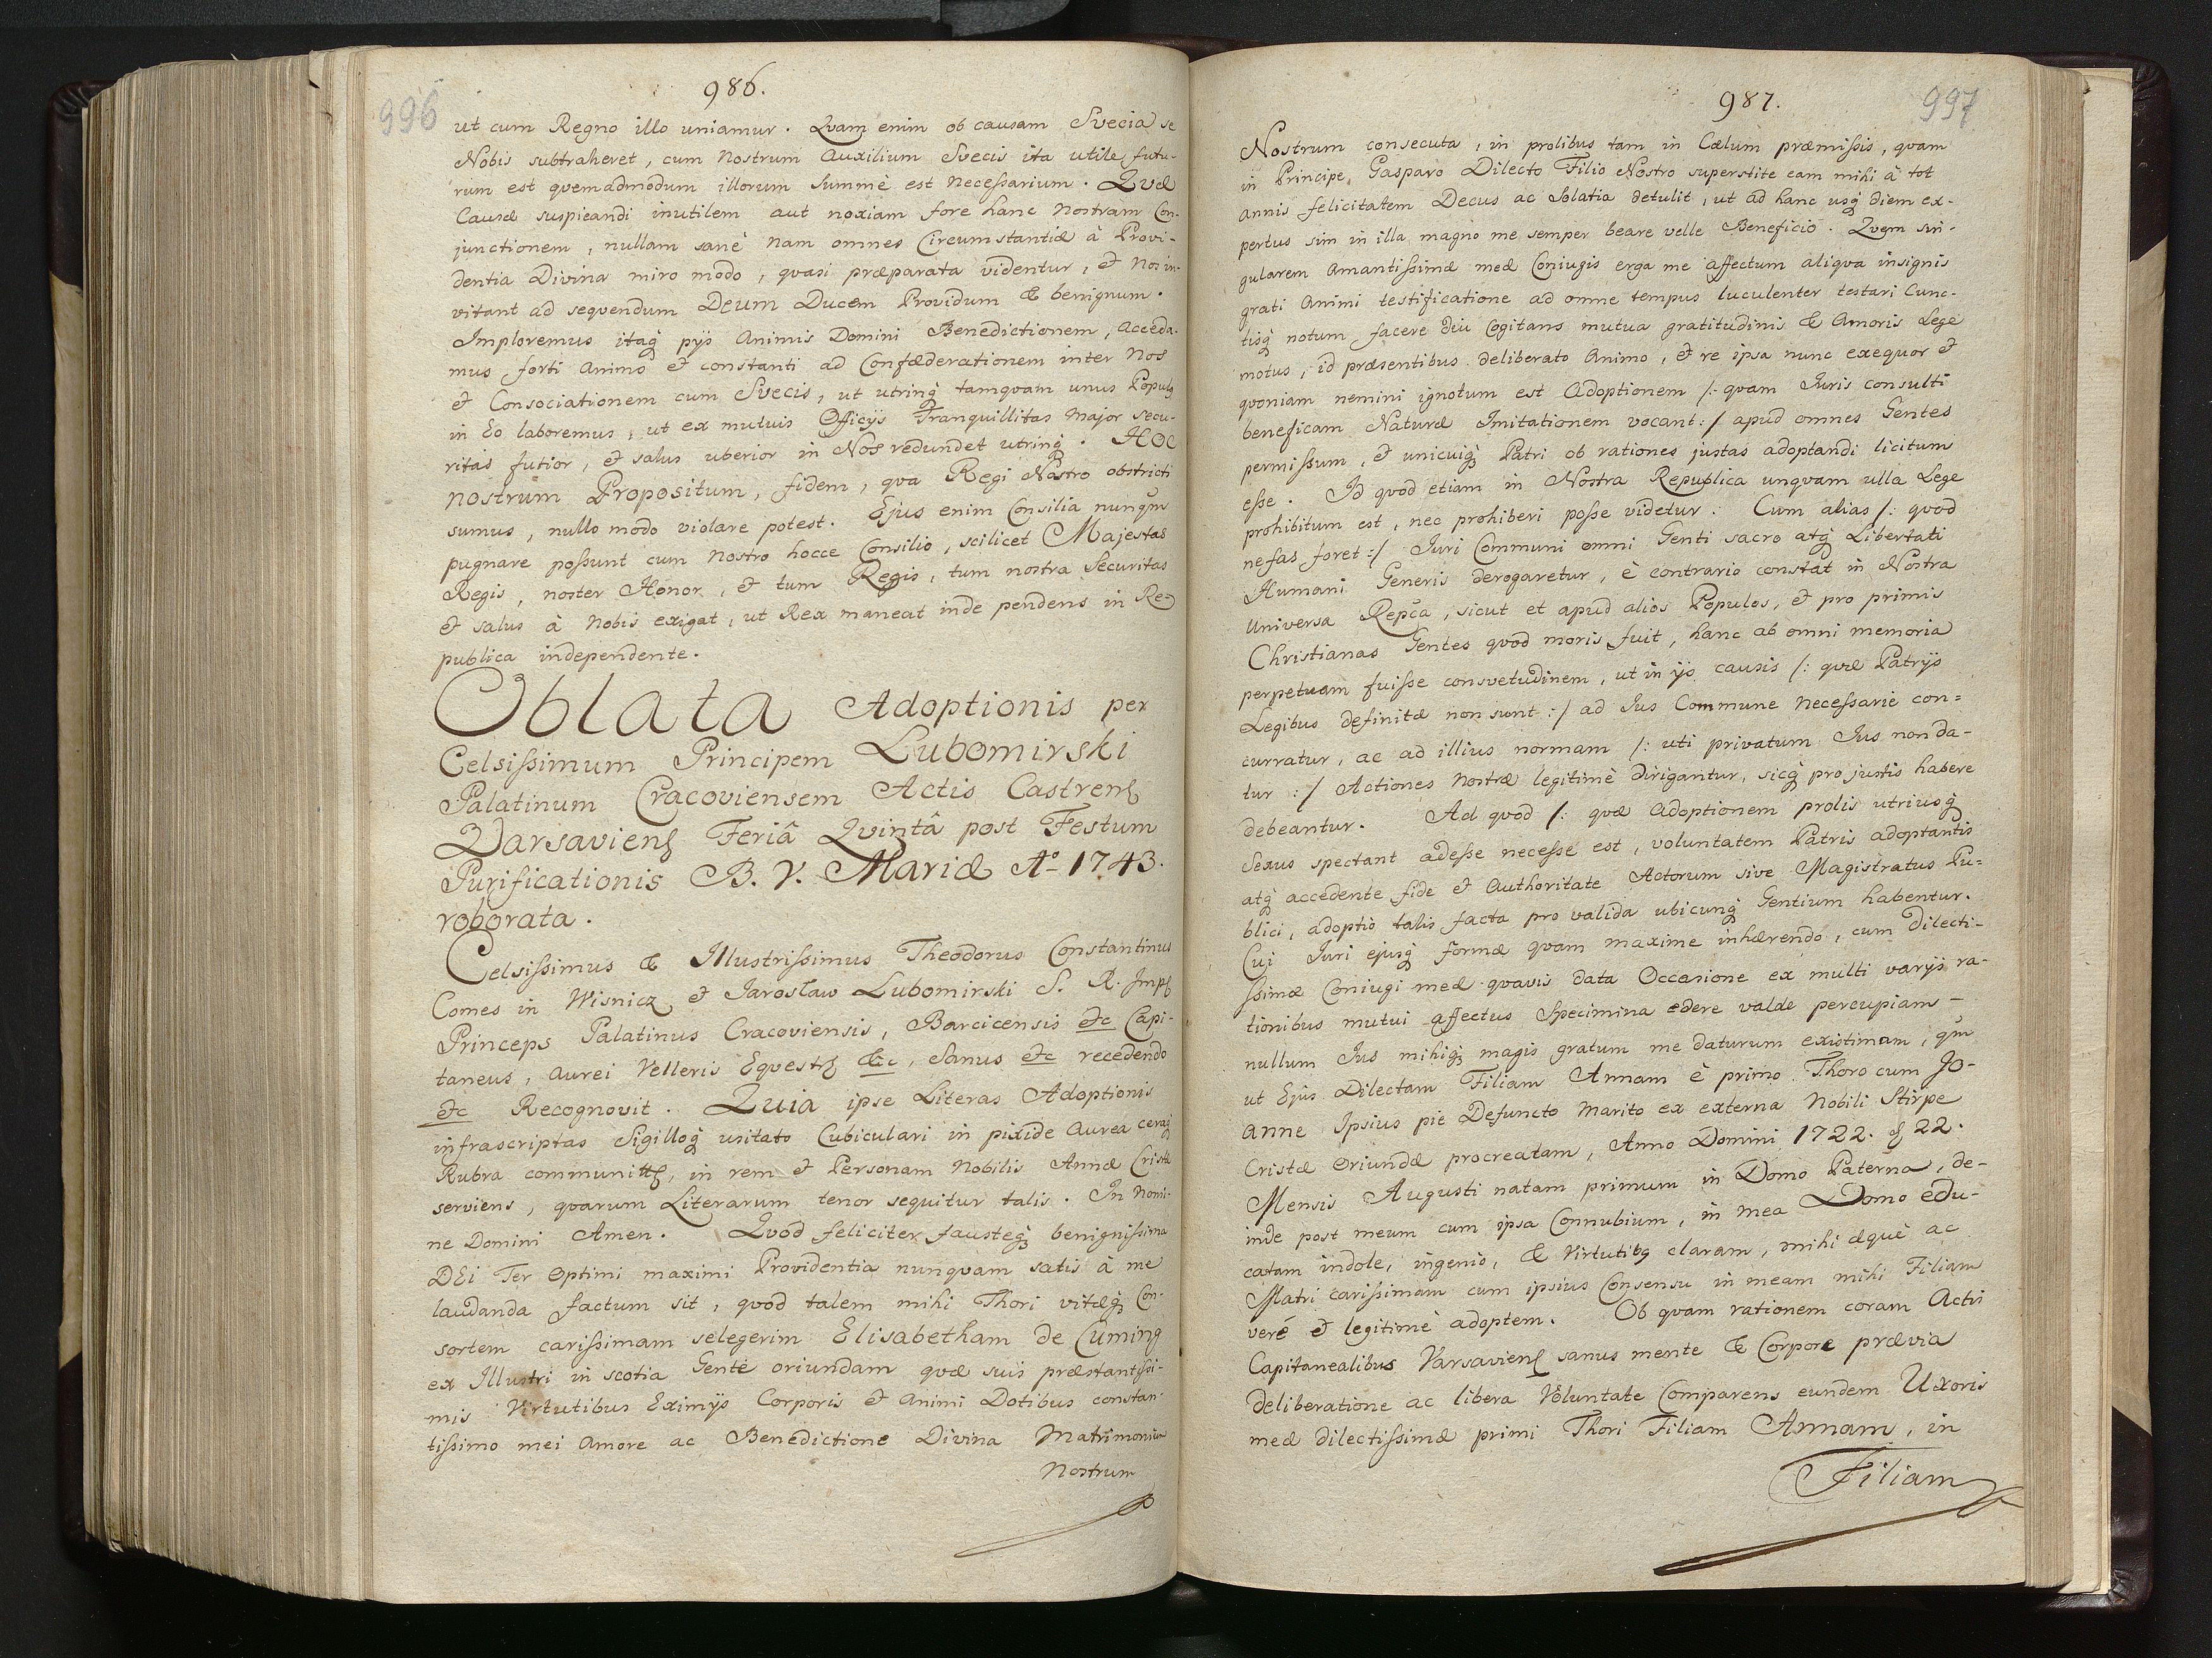 986.
996
ut cum Regno illo uniamur. Qvam enim ob causam Svecia se
Nobis subtraheret, cum nostrum Auxilium Svecis ita utile futu-
rum est qvemadmodum illorum summè est necessarium. Qvæ
Causæ suspicandi inutilem aut noxiam fore hanc nostram Con-
junctionem, nullam sanè nam omnes Circumstantiæ à Provi-
dentia Divina miro modo, qvasi præparata videntur, et nos in-
vitant ad seqvendum Deum Ducem Providum & benignum.
Imploremus itaq pijs Animis Domini Benedictionem, acceda-
mus forti animo et constanti ad Confæderationem inter nos
et Consociationem cum Svecis, ut utrinq tamqvam unus Populq
in Eo laboremus, ut ex mutuis Officijs Tranquillitas major secu-
ritas futior, et salus uberior in Nos redundet utrinq. HOC
nostrum Propositum, fidem, qva Regi Nostro obstricti
sumus, nullo modo violare potest. Ejus enim Consilia nunqm
pugnare possunt cum nostro hocce Consilio, scilicet Majestas
Regis, noster Honor, et tum Regis, tum nostra Securitas
et salus à nobis exigat, ut Rex maneat inde pendens in Re=
publica independente.
Oblata Adoptionis per
Celsissimum Principem Lubomirski
Palatinum Cracoviensem Actis Castrens
Varsaviens Feriâ Qvintâ post Festum
Purificationis B. V. Mariæ Aº 1743.
roborata.
Celsissimus & Illustrissimus Theodorus Constantinus
Comes in Wisnicz et Jaroslaw Lubomirski S. R. Imp
Princeps Palatinus Cracoviensis, Barcicensis etc Capi-
taneus, aurei Velleris Eqvest &c, Sanus etc recedendo
etc Recognovit. Quia ipse Literas Adoptionis
infrascriptas Sigilloq usitato Cubiculari in pixide Aurea ceraq
Rubra communitt, in rem et Personam Nobilis Annæ Cristæ
serviens, qvarum Literarum tenor seqvitur talis. In Nomi-
ne Domini Amen. Qvod feliciter fausteq benignissima
DEi Ter Optimi maximi Providentia nunqvam satis à me
laudanda factum sit, qvod talem mihi Thori vitæq Con-
sortem carissimam selegerim Elisabetham de Cuming
ex Illustri in Scotia Gente oriundam qvæ suis præstantissi-
mis Virtutibus Eximijs Corporis et Animi Dotibus constan-
tissimo mei Amore ac Benedictione Divina Matrimonium
Nostrum
987.
997
Nostrum consecuta, in prolibus tam in Cælum præmissis, qvam
in Principe, Gasparo Dilecto Filio Nostro superstite eam mihi à tot
annis felicitatem Decus ac Solatia detulit, ut ad hanc usq diem ex-
pertus sim in illa magno me semper beare velle Beneficio. Qvem sin-
gularem Amantissimæ meæ Coniugis erga me affectum aliqva insignis
grati Animi testificatione ad omne tempus luculenter testari Cunc-
tisq notum facere diu Cogitans mutua gratitudinis & Amoris Lege
motus, id præsentibus deliberato Animo, et re ipsa nunc exequor et
qvoniam nemini ignotum est Adoptionem /: qvam Iuris consulti
beneficam Naturæ Imitationem vocant :/ apud omnes Gentes
permissum, et unicuiq Patri ob rationes justas adoptandi licitum
esse. Id qvod etiam in Nostra Republica unqvam ulla Lege
prohibitum est, nec prohiberi posse videtur. Cum alias /: qvod
nefas foret :/ Iuri Communi omni Genti sacro atq Libertati
Humani Generis derogaretur, è contrario constat in Nostra
Universa Repca, sicut et apud alios Populos, et pro primis
Christianas Gentes qvod moris fuit, hanc ab omni memoria
perpetuam fuisse consvetudinem, ut in ijs causis /: qvæ Patrijs
Legibus definitæ non sunt :/ ad Ius Commune necessarie con=
curratur, ac ad illius normam /: uti privatum Ius non da-
tur :/ Actiones nostræ legitimè dirigantur, sicq pro justis habere
debeantur. Ad qvod /: qvæ Adoptionem prolis utriusq
Sexus spectant adesse necesse est, voluntatem Patris adoptantis
atq accedente fide et Authoritate Actorum sive Magistratus Pu=
blici, adoptio talis facta pro valida ubicunq Gentium habentur.
Cui Iuri ejusq formæ qvam maxime inhærendo, cum Dilecti-
ssimæ Coniugi meæ qvavis data Occasione ex multi varijs ra-
tionibus mutui affectus Specimina edere valde percupiam -
nullum Ius mihiq magis gratum me daturum existimam, qm
ut Ejus Dilectam Filiam Annam è primo Thoro cum Jo-
anne Ipsius pie Defuncto Marito ex externa Nobili Stirpe
Cristæ Oriundæ procreatam, Anno Domini 1722. d 22.
Mensis Augusti natam primum in Domo Paterna, de-
inde post meum cum ipsa Connubium, in mea Domo edu-
catam indole, ingenio, & Virtutibq claram, mihi æquè ac
Matri carissimam cum ipsius Consensu in meam mihi Filiam
veré et legitimè adoptem. Ob qvam rationem coram Actis
Capitanealibus Varsaviens sanus mente & Corpore prævia
deliberatione ac libera Voluntate Comparens eundem Uxoris
meæ dilectissimæ primi Thori Filiam Annam, in
Filiam